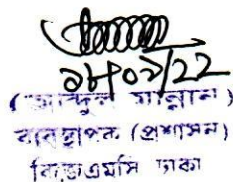 ১৮/০১/22
(আব্দুল মান্নান)
ব্যবস্থাপক (প্রশাসন)
বিজেএমসি ঢাকা